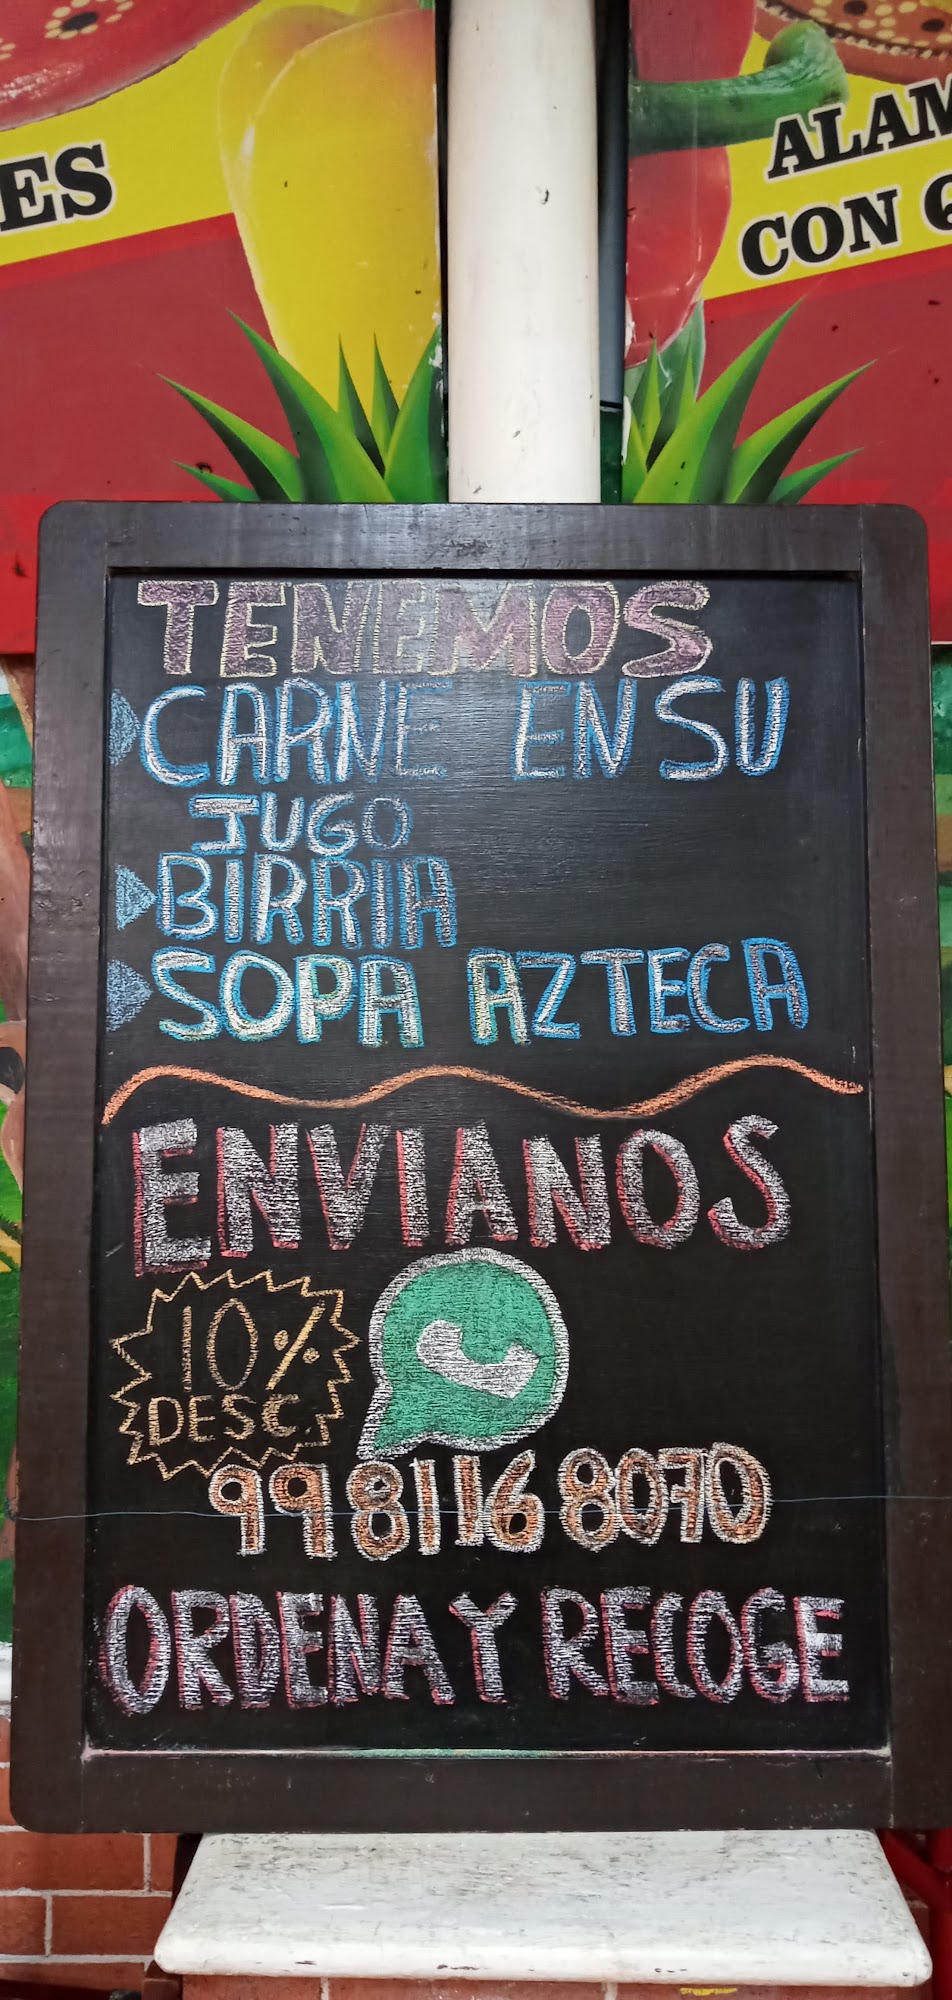 ES
ALAM
CON
TENEMOS
CARNE EN SU
JUGO
BIRRIA
SOPA AZTECA
ENVIANOS
10%
DESC.
9981168070
ORDENA Y RECOGE